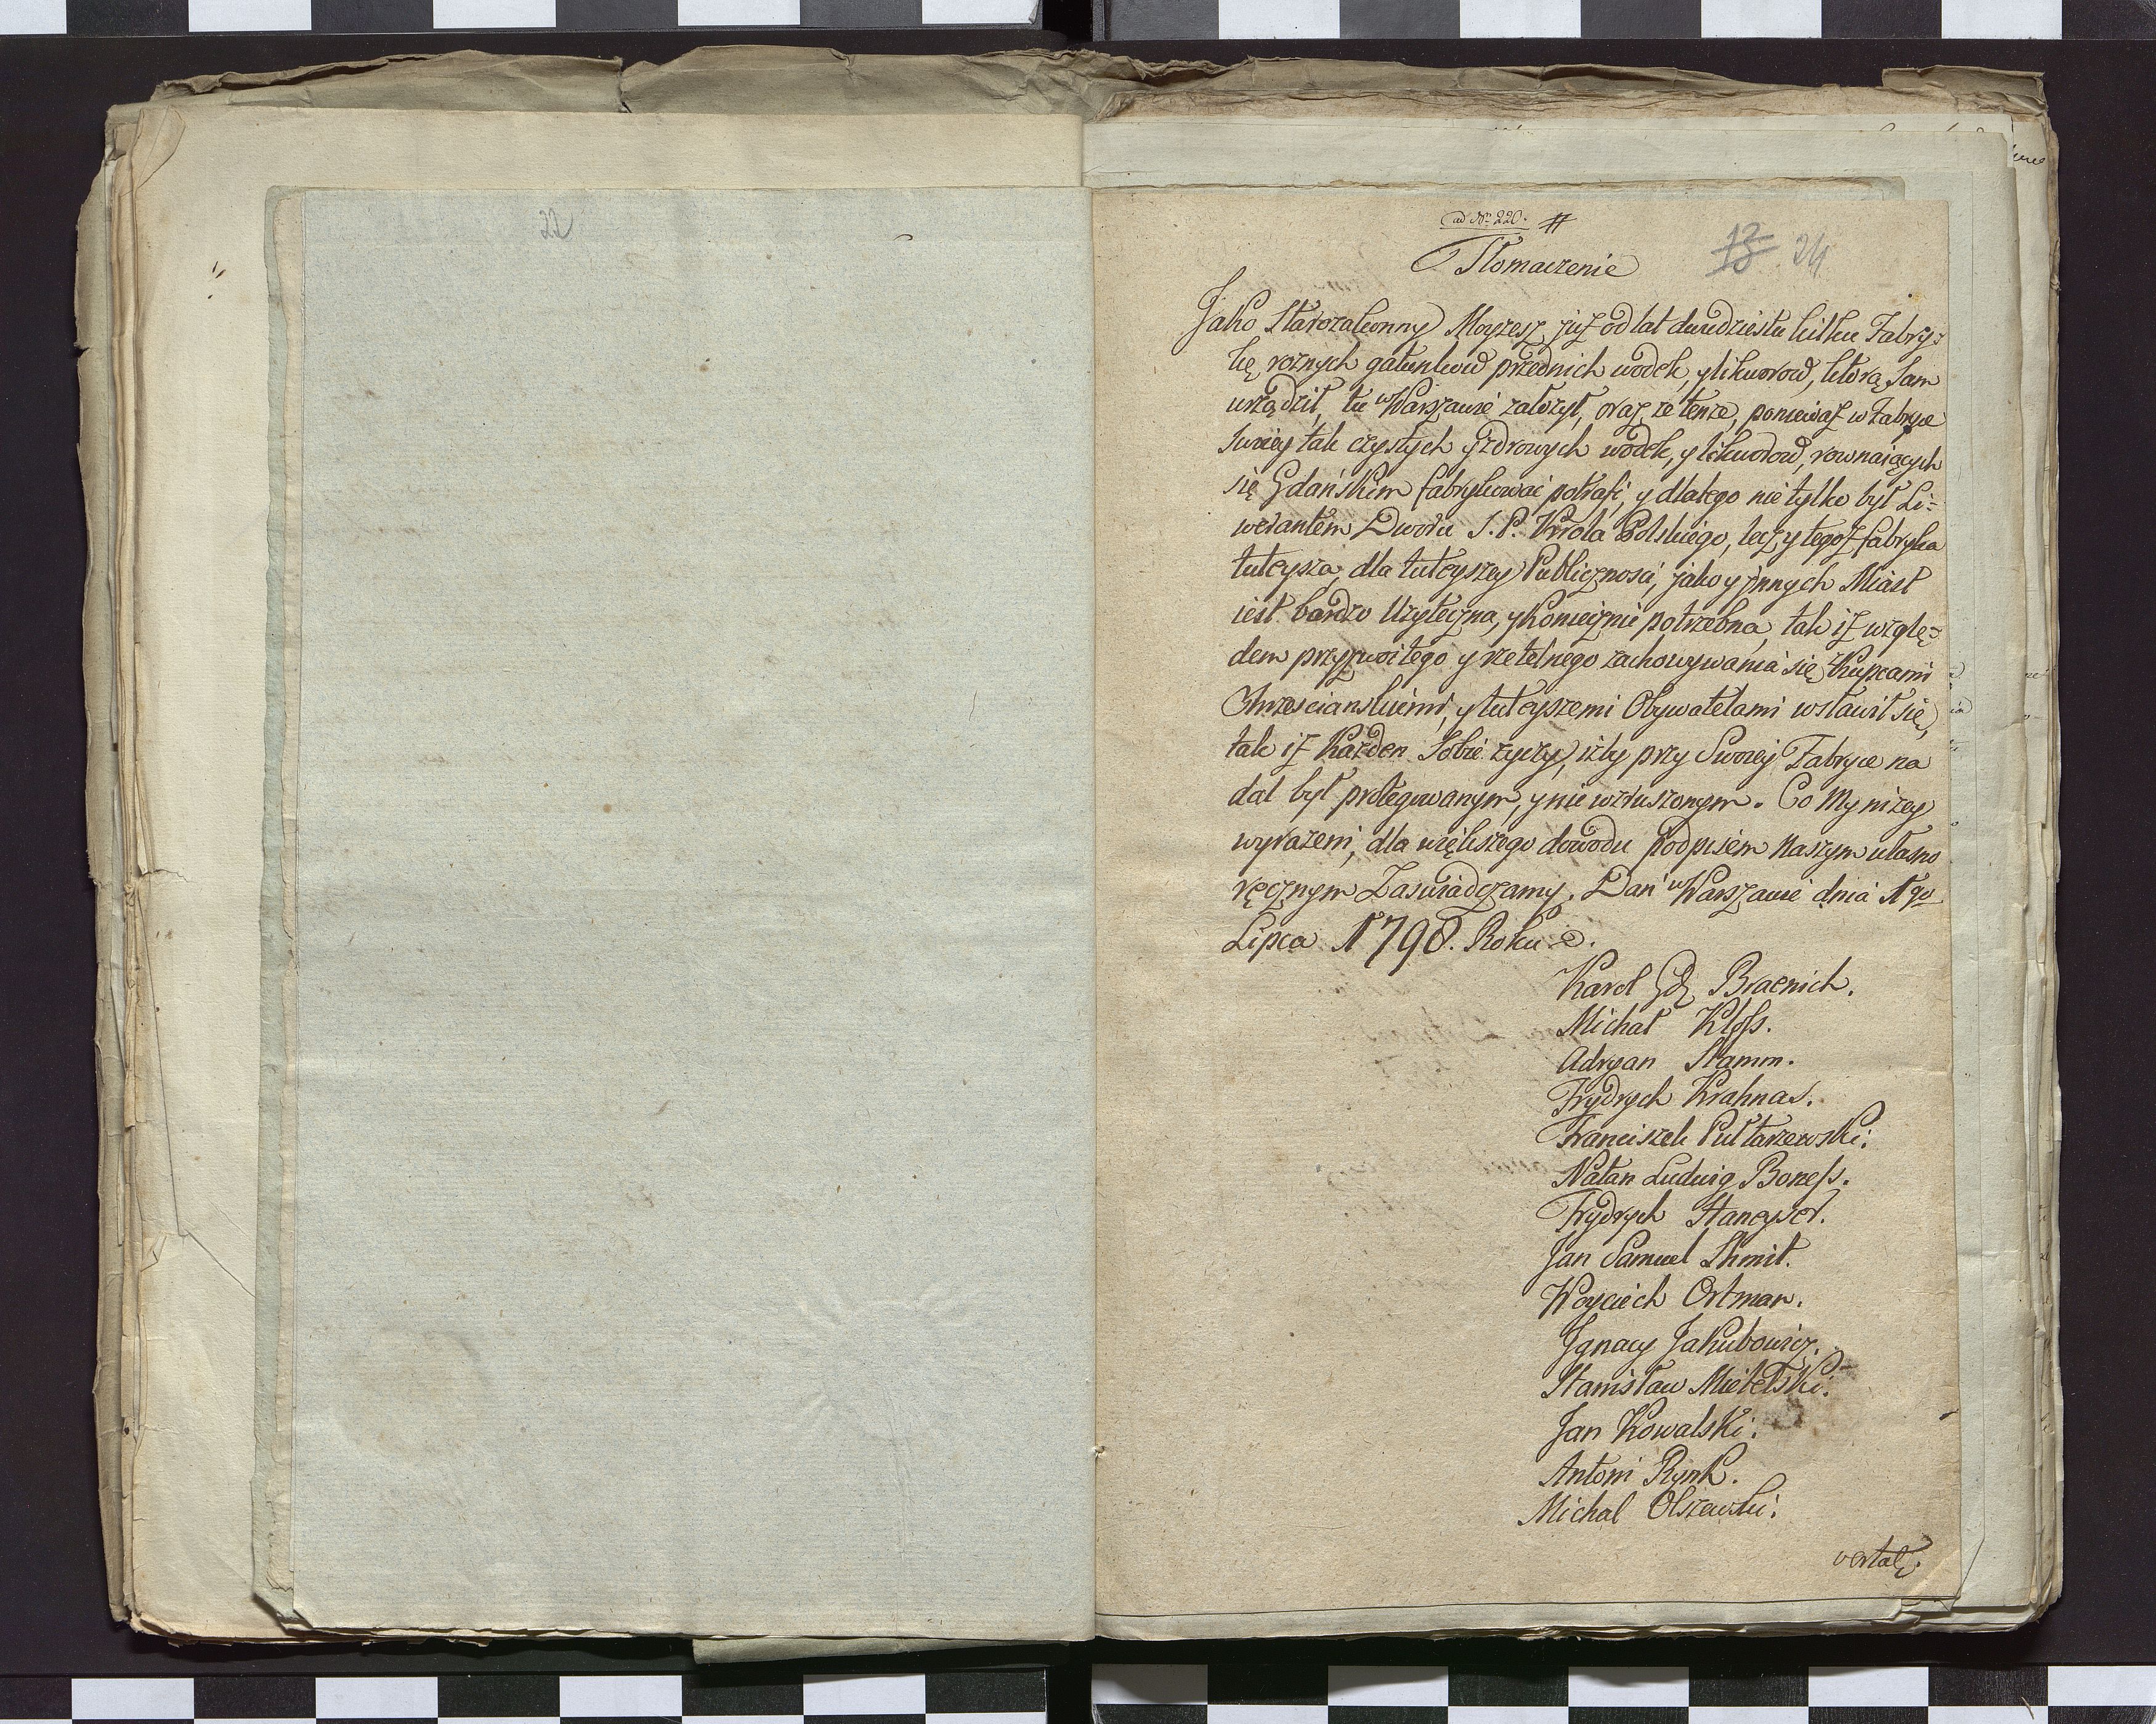 22
ad Nro 220. #
Tłomaczenie
13 24
Jako Starozakonny Moyzesz już od lat dwudziestu kilku Fabry=
kę rożnych gatunkow przednich wodek, y likworow, którą Sam
urządził, tu w Warszawie założył, oraz że tenże, ponieważ w Fabryce
Swoiey tak czystych y zdrowych wodek, y likworow, rownaiących
się Gdańskim fabrykować potrafi, y dlatego nie tylko był Li=
werantem Dworu S. P. Krola Polskiego, lecz y tegoż fabryka
tuteysza, dla tuteyszey Publicznosci, jako y jnnych Miast
iest bardzo Użyteczna, y Koniecznie potrzebna, tak iż wzglę=
dem przyzwoitego y rzetelnego zachowywania się z Kupcami
Chrzescianskiemi, y tuteyszemi Obywatelami wsławił się,
tak iż Każden Sobie życzy, iżby przy Swoiey Fabryce na
dal był protegowanym, y nie wzruszonym. Co My niżey
wyrażeni, dla większego dowodu podpisem Naszym własno
ręcznym Zaswiadczamy. Dań w Warszawie dnia 1go
Lipca 1798. Roku
Karol Gdz Braenich.
Michał Kloss.
Adryan Stamm.
Frydrych Krahnas.
Franciszek Pułtarzewski.
Natan Ludwig Boness.
Frydrych Stancyser.
Jan Samuel Shmit.
Woyciech Ortman.
Jgnacy Jakubowicz.
Stanisław Mielelski.
Jan Kowalski.
Antoni Rynk.
Michal Olszewski.
vertatz.